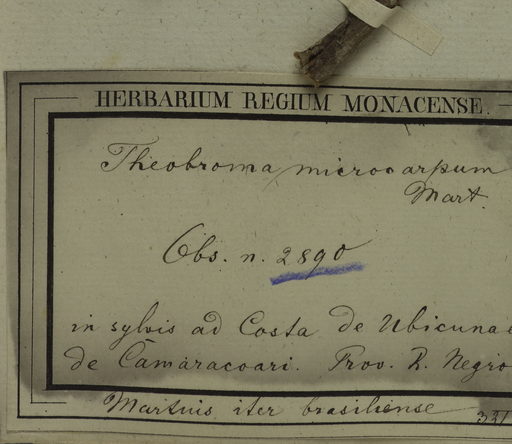 HERBARIUM REGIUM MONACENSE.
Theobroma microcarpum
Mart.
Obs. n. 2890
in sylvis ad Costa de Ubicuna
de Camaracoari. Prov. R. Negro
Martius iter brasiliense
321